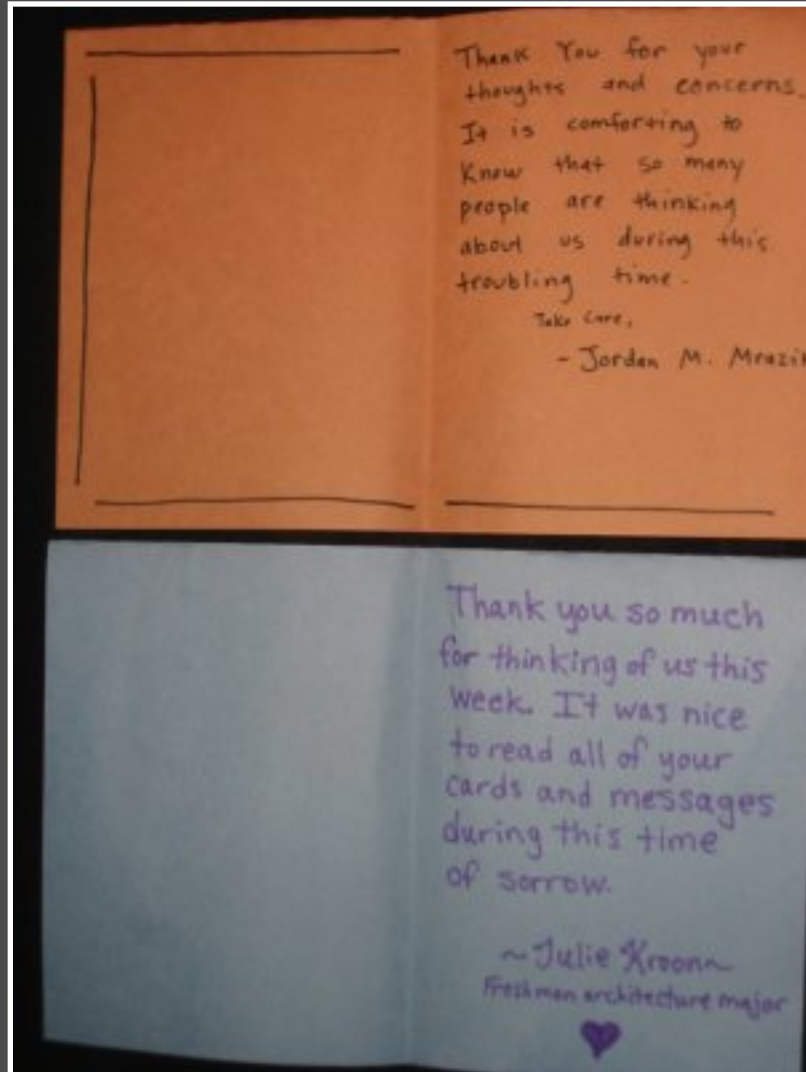 Thank You for your
thoughts and concerns.
It is comforting to
Know that so many
people are thinking
about us during this
troubling time.
Take Care,
- Jordan M.
Thank you so much
for thinking of us this
week. It was nice
to read all of your
cards and messages
during this time
of sorrow.
~Julie Kroon~
Freshman architecture major